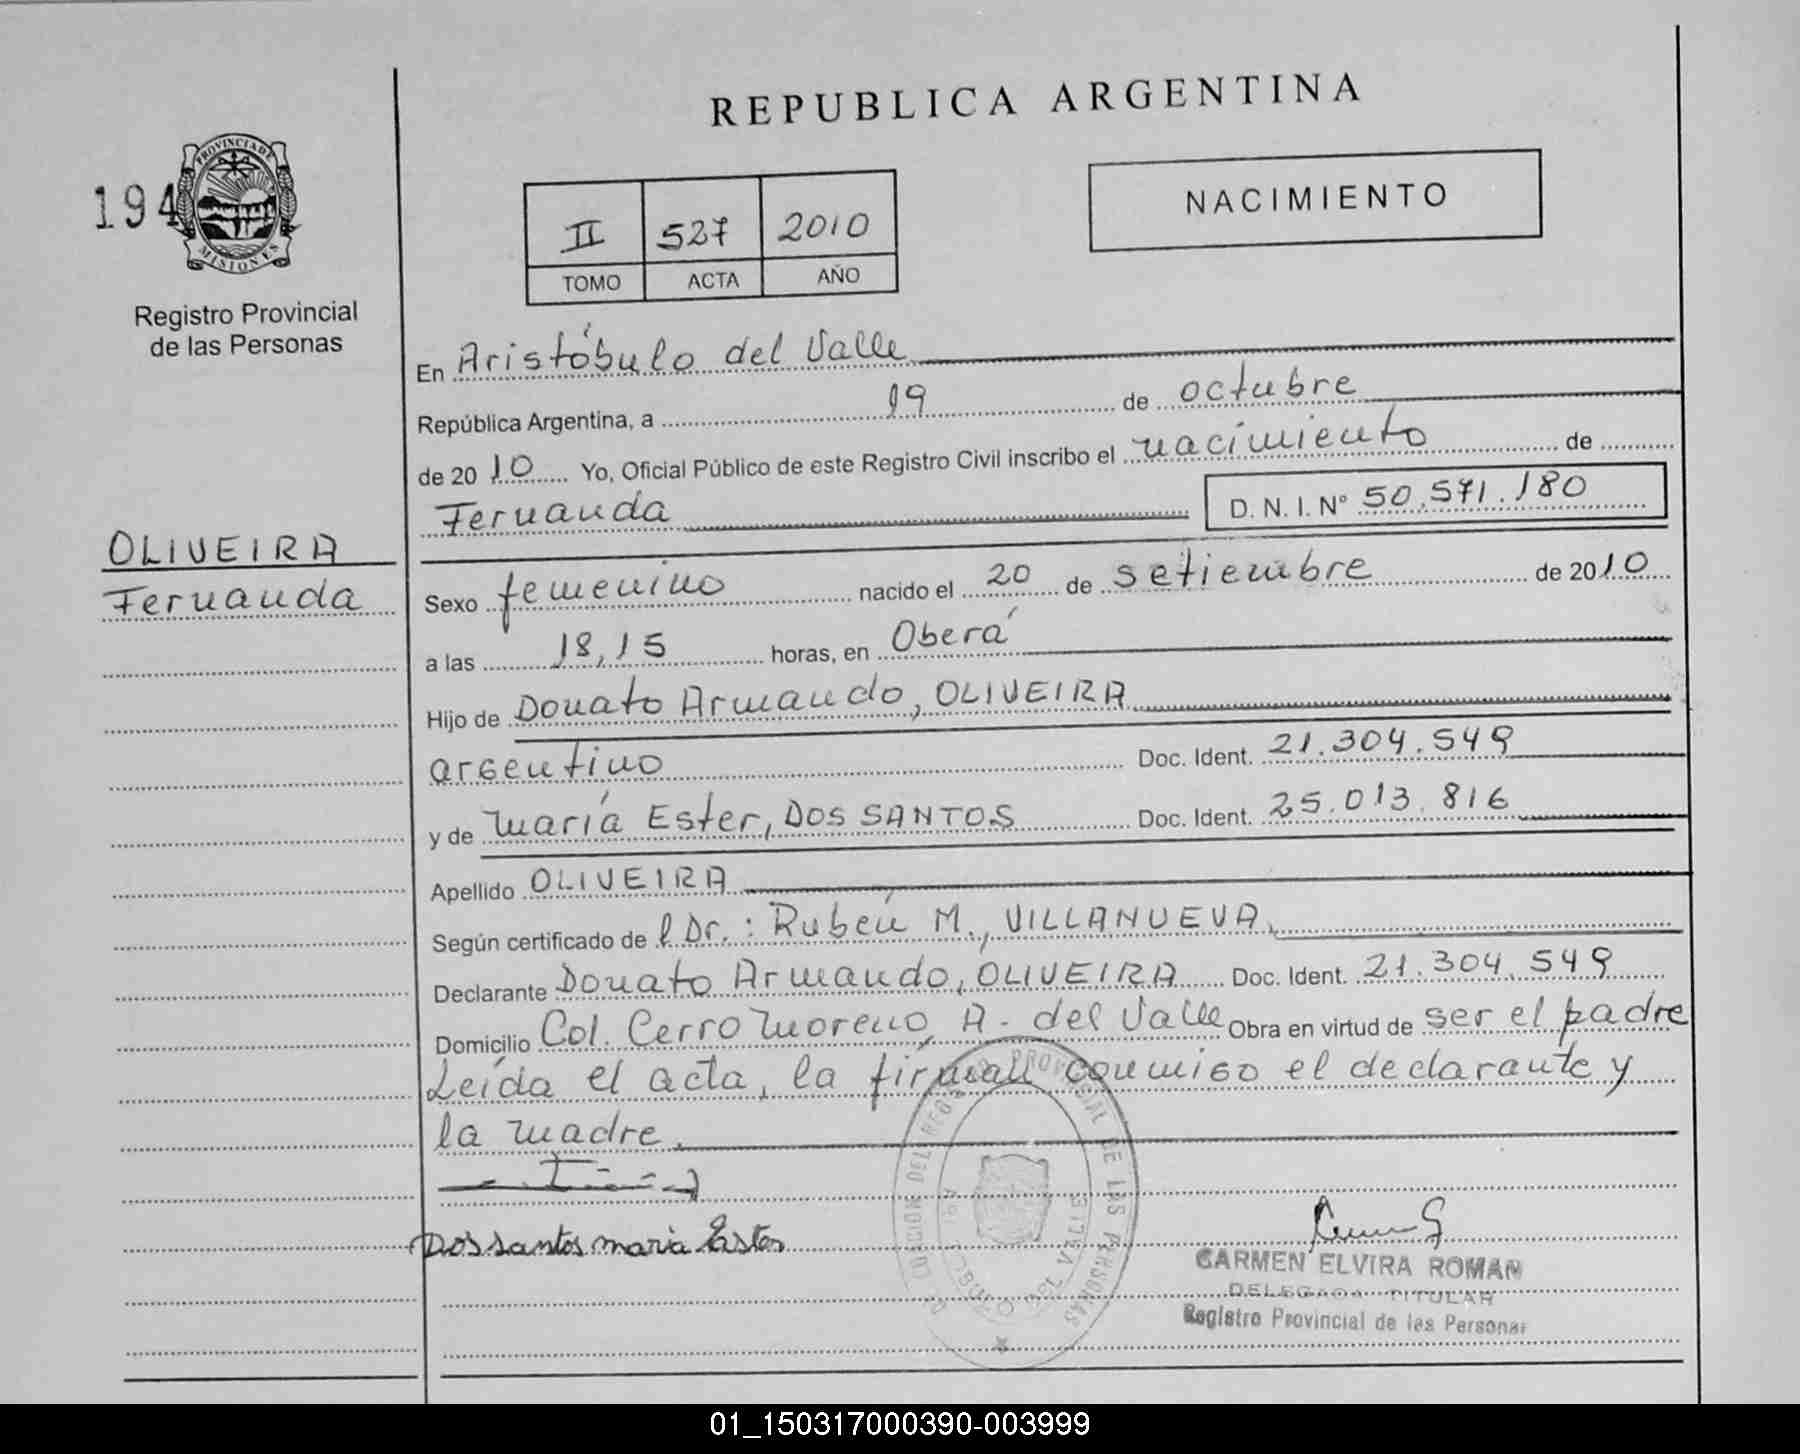 REPUBLICA ARGENTINA
194
PROVINCIA DE
MISIONES
Registro Provincial
de las Personas
NACIMIENTO
II 527 2010
TOMO ACTA AÑO
En Aristóbulo del Valle
República Argentina, a 19 de octubre
de 2010 Yo, Oficial Público de este Registro Civil inscribo el nacimiento de
Fernanda D. N. I. Nº 50.571.180
OLIVEIRA
Fernanda
Sexo femenino nacido el 20 de setiembre de 2010
a las 18,15 horas, en Oberá
Hijo de Donato Armando, OLIVEIRA
argentino Doc. Ident. 21.304.549
y de María Ester, DOS SANTOS Doc. Ident. 25.013.816
Apellido OLIVEIRA
Según certificado de l Dr.: Rubén M., VILLANUEVA,
Declarante Donato Armando, OLIVEIRA Doc. Ident. 21.304.549
Domicilio Col. Cerro Moreno, A. del Valle Obra en virtud de ser el padre
Leída el acta, la firman conmigo el declarante y
la madre.
Dos santos maria Ester
CARMEN ELVIRA ROMAN
DELEGADA TITULAR
Registro Provincial de las Personas
PROVINCIAL DE LAS PERSONAS
01_150317000390-003999